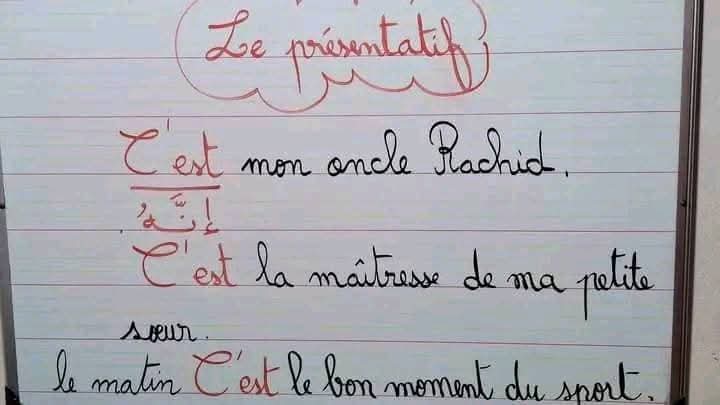 Le présentatif
C'est mon oncle Rachid.
إنَّهُ
C'est la maîtresse de ma petite
sœur.
le matin C'est le bon moment du sport.